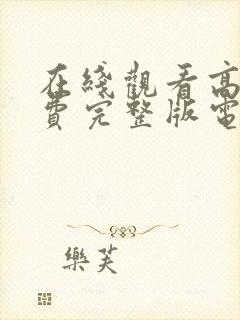 在綫觀看高
費完整版電
樂芙